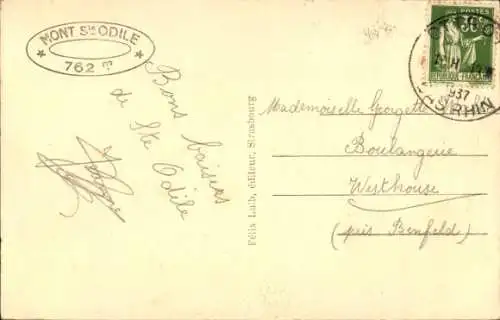 MONT Ste ODILE
762
Bons baisers
de Ste Odile
Félix Luib, éditeur, Strasbourg
POSTES
937
RHIN
Mademoiselle Georgette
Boulangerie
Westhouse
(près Benfeld)